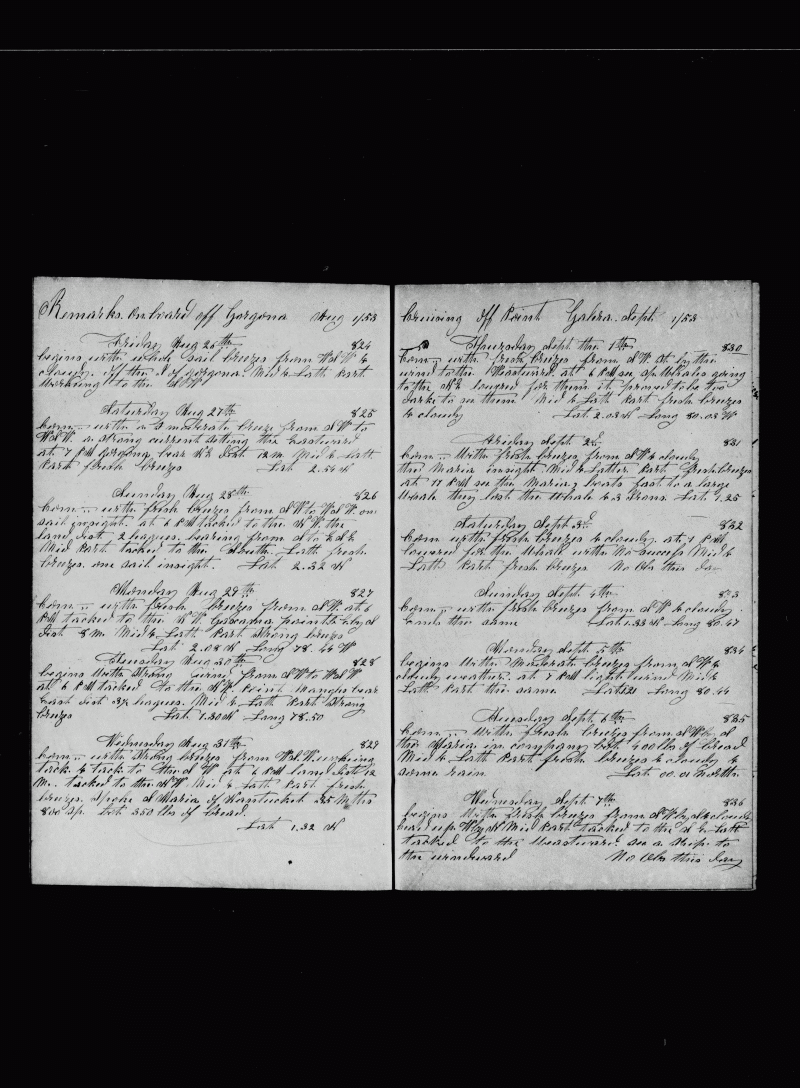 Remarks. on board off Gorgona Aug 1/53
Friday Aug 26th 824
begins with whole sail breezes from WSW &
cloudy. off the I of gorgona Mid & Lath Part
Working to the SW
Saturday Aug 27th 825
Com.,, with a moderate breeze from SW to
WSW. a strong current setting the Eastward
at 7 PM gorgona bear Dist 12 m. Mid & Lath
Part fresh breezes Lat 2.54 N
Sunday Aug 28th 826
Com.,, with fresh breezes from SW to WSW on
sail insight. at 6 PM tacked to the NW. the
land dist 2 leagues. bearing from S to
Mid Part tacked to the South. Lath fresh
breezes. one sail insight. Lat. 2.32 N
Monday Aug 29th 827
Com.,, with fresh breezes from SW. at 6
PM tacked to the NW. point
Dist 8 m. Mid & Lath Part Strong breezes
Lat 2.08 N Long 78.44 W
Tuesday Aug 30th 828
begins With Strong wind from SW to WSW
at 6 PM tacked to the NW. Point bear
East dist 3½ leagues. Mid & Lath Part Strong
breezes Lat. 1.30 N Long 78.50
Wednesday Aug 31th 829
Com.,, with strong breezes from WSW. working
tack & tack to the SW at 6 PM land dist 12
m. tacked to the NW Mid & Lath Part fresh
breezes. Spoke Maria of Nantucket 25 Mths
800 Sp. Got 350 lbs of bread.
Lat 1.32 N
Cruising off Point Galera. Sept 1/53
Thursday Sept the 1th 830
Com.,, with fresh breezes from SW. by the
wind to the Westward. at 6 PM see Sp. Whales going
to the lowered for them it proved to be too
darke to see them Mid & Lath Part fresh breezes
& cloudy Lat. 2.03 N Long 80.03 W
Friday Sept 2d 831
Com.,, With fresh breezes from SW & cloudy
the Maria insight Mid & Latter Part fresh breezes
at 11 AM see the Maria, boats fast to a large
Whale they lost the Whale & 3 Irons. Lat. 1.25
Saturday Sept 3d 832
Com with fresh breezes & cloudy. at 1 PM
lowered for the Whale with No Success Mid &
Lath Part fresh breezes No Obs this day
Sunday Sept 4th 833
Com.,, with fresh breezes from SW & cloudy
ends the same Lat 1.33 N Long 80.47
Monday Sept 5th 834
begins With Moderate breezes from SW &
cloudy weather. at 7 PM light wind Mid &
Lath Part the same Lat 1.21 Long 80.44
Tuesday Sept. 6th 835
Com.,, With fresh breezes from SW by S
the Maria in company Got 400 lbs of bread
Mid & Lath Part fresh breezes & cloudy &
some rain Lat 00.01 North
Wensday Sept 7th 836
begins With fresh breezes from SW by S & cloudy
Mid Part tacked to the S & Lath
tacked to the Westward. see a Ship to
the windward No Obs this day